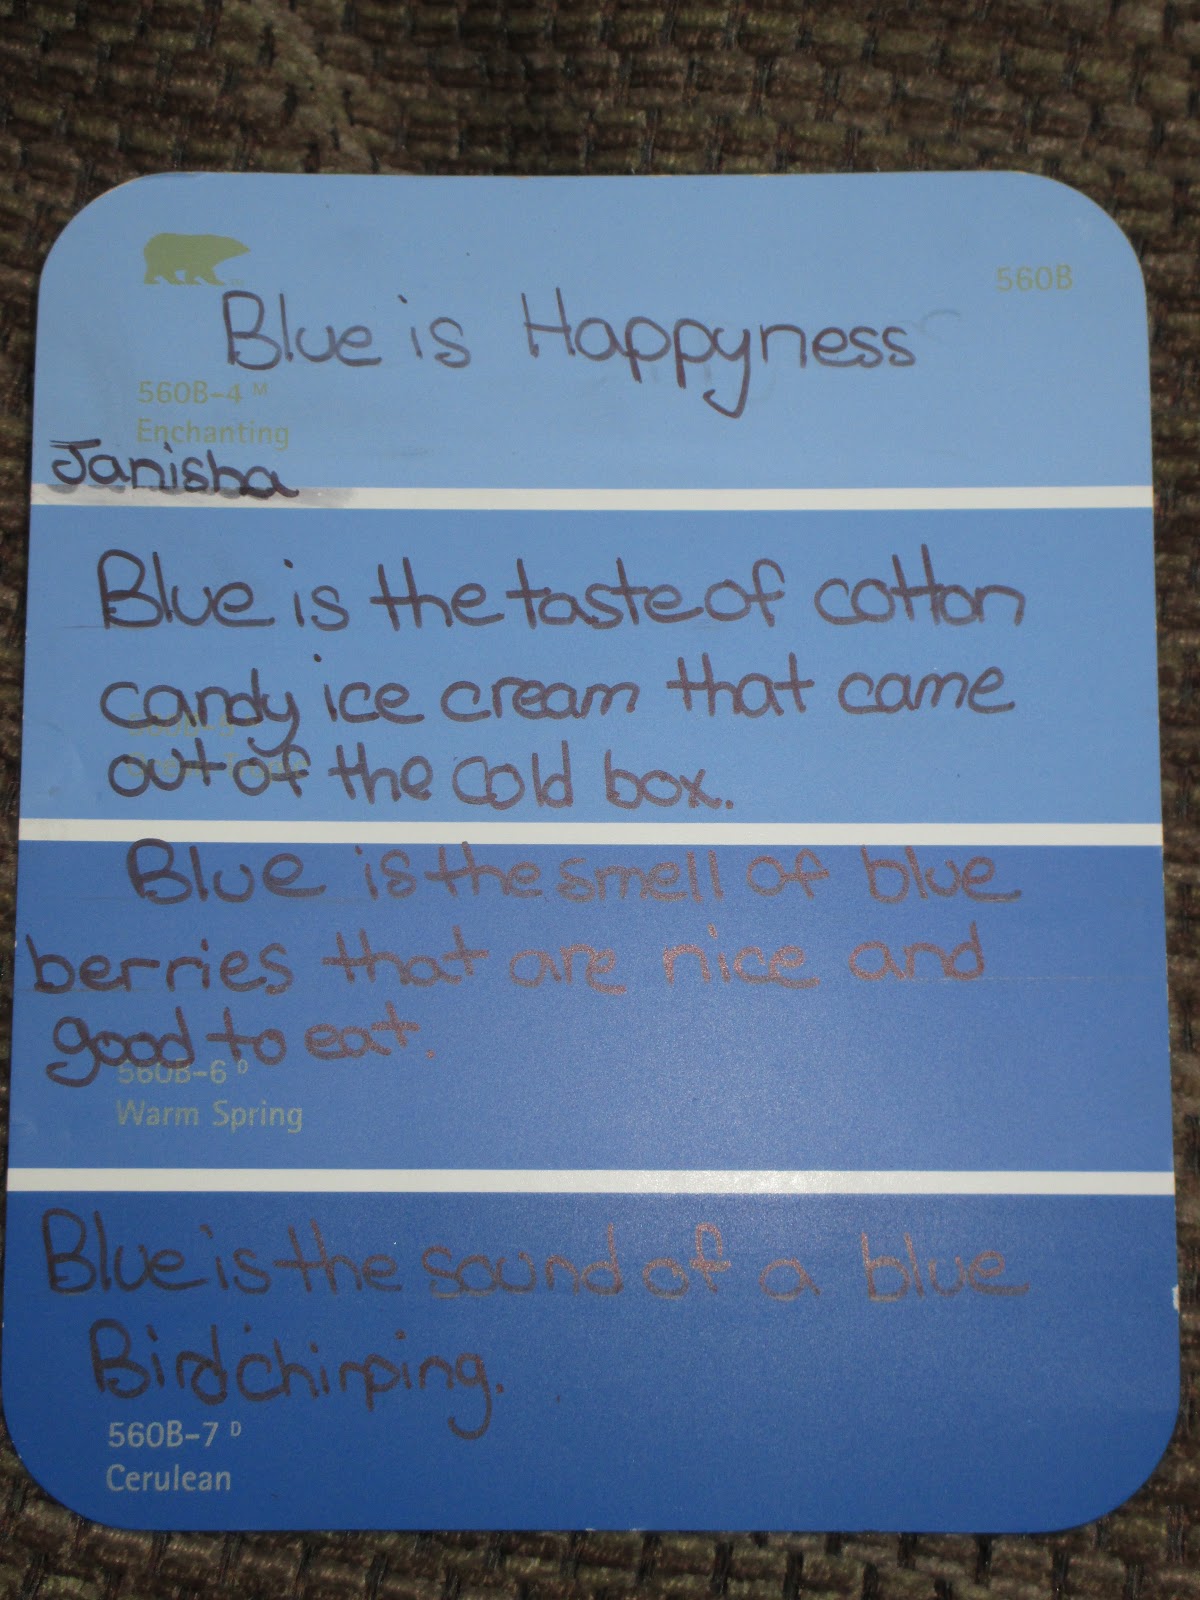 560B
Blue is Happyness
560B-4 M
Enchanting
Janisha
Blue is the taste of cotton
candy ice cream that came
out of the cold box.
Blue is the smell of blue
berries that are nice and
good to eat.
560B-6 D
Warm Spring
Blue is the sound of a blue
Bird chirping.
560B-7 D
Cerulean